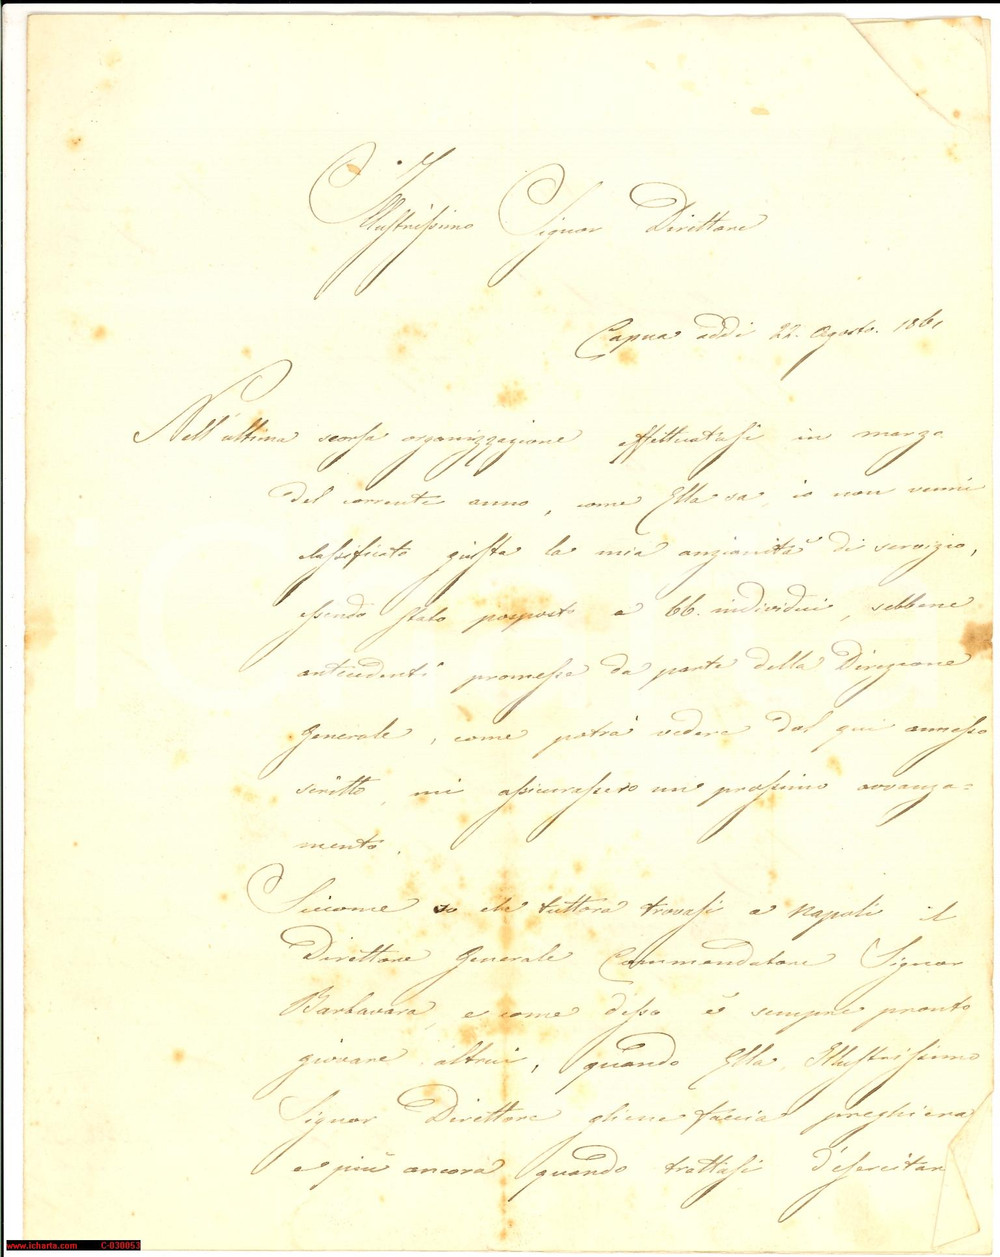 Illustrissimo Signor Direttore
Capua addi 22. Agosto. 1861
Nell'ultima scorsa organizzazione effettuatasi in marzo
del corrente anno, come Ella sa, io non venni
classificato giusta la mia anzianità di servizio,
essendo stato posposto a 66. individui, sebbene
antecedenti promesse da parte della Direzione
Generale, come potrà vedere dal qui annesso
scritto, mi assicurassero un prossimo avvanza=
mento.
Siccome so che tuttora trovasi a Napoli il
Direttore Generale Commendatore Signor
Barbavara, e come desso è sempre pronto
giovare altrui, quando Ella Illustrissimo
Signor Direttore gliene faccia preghiera
e più ancora quando trattasi d'esercitar
www.icharta.com C-030053